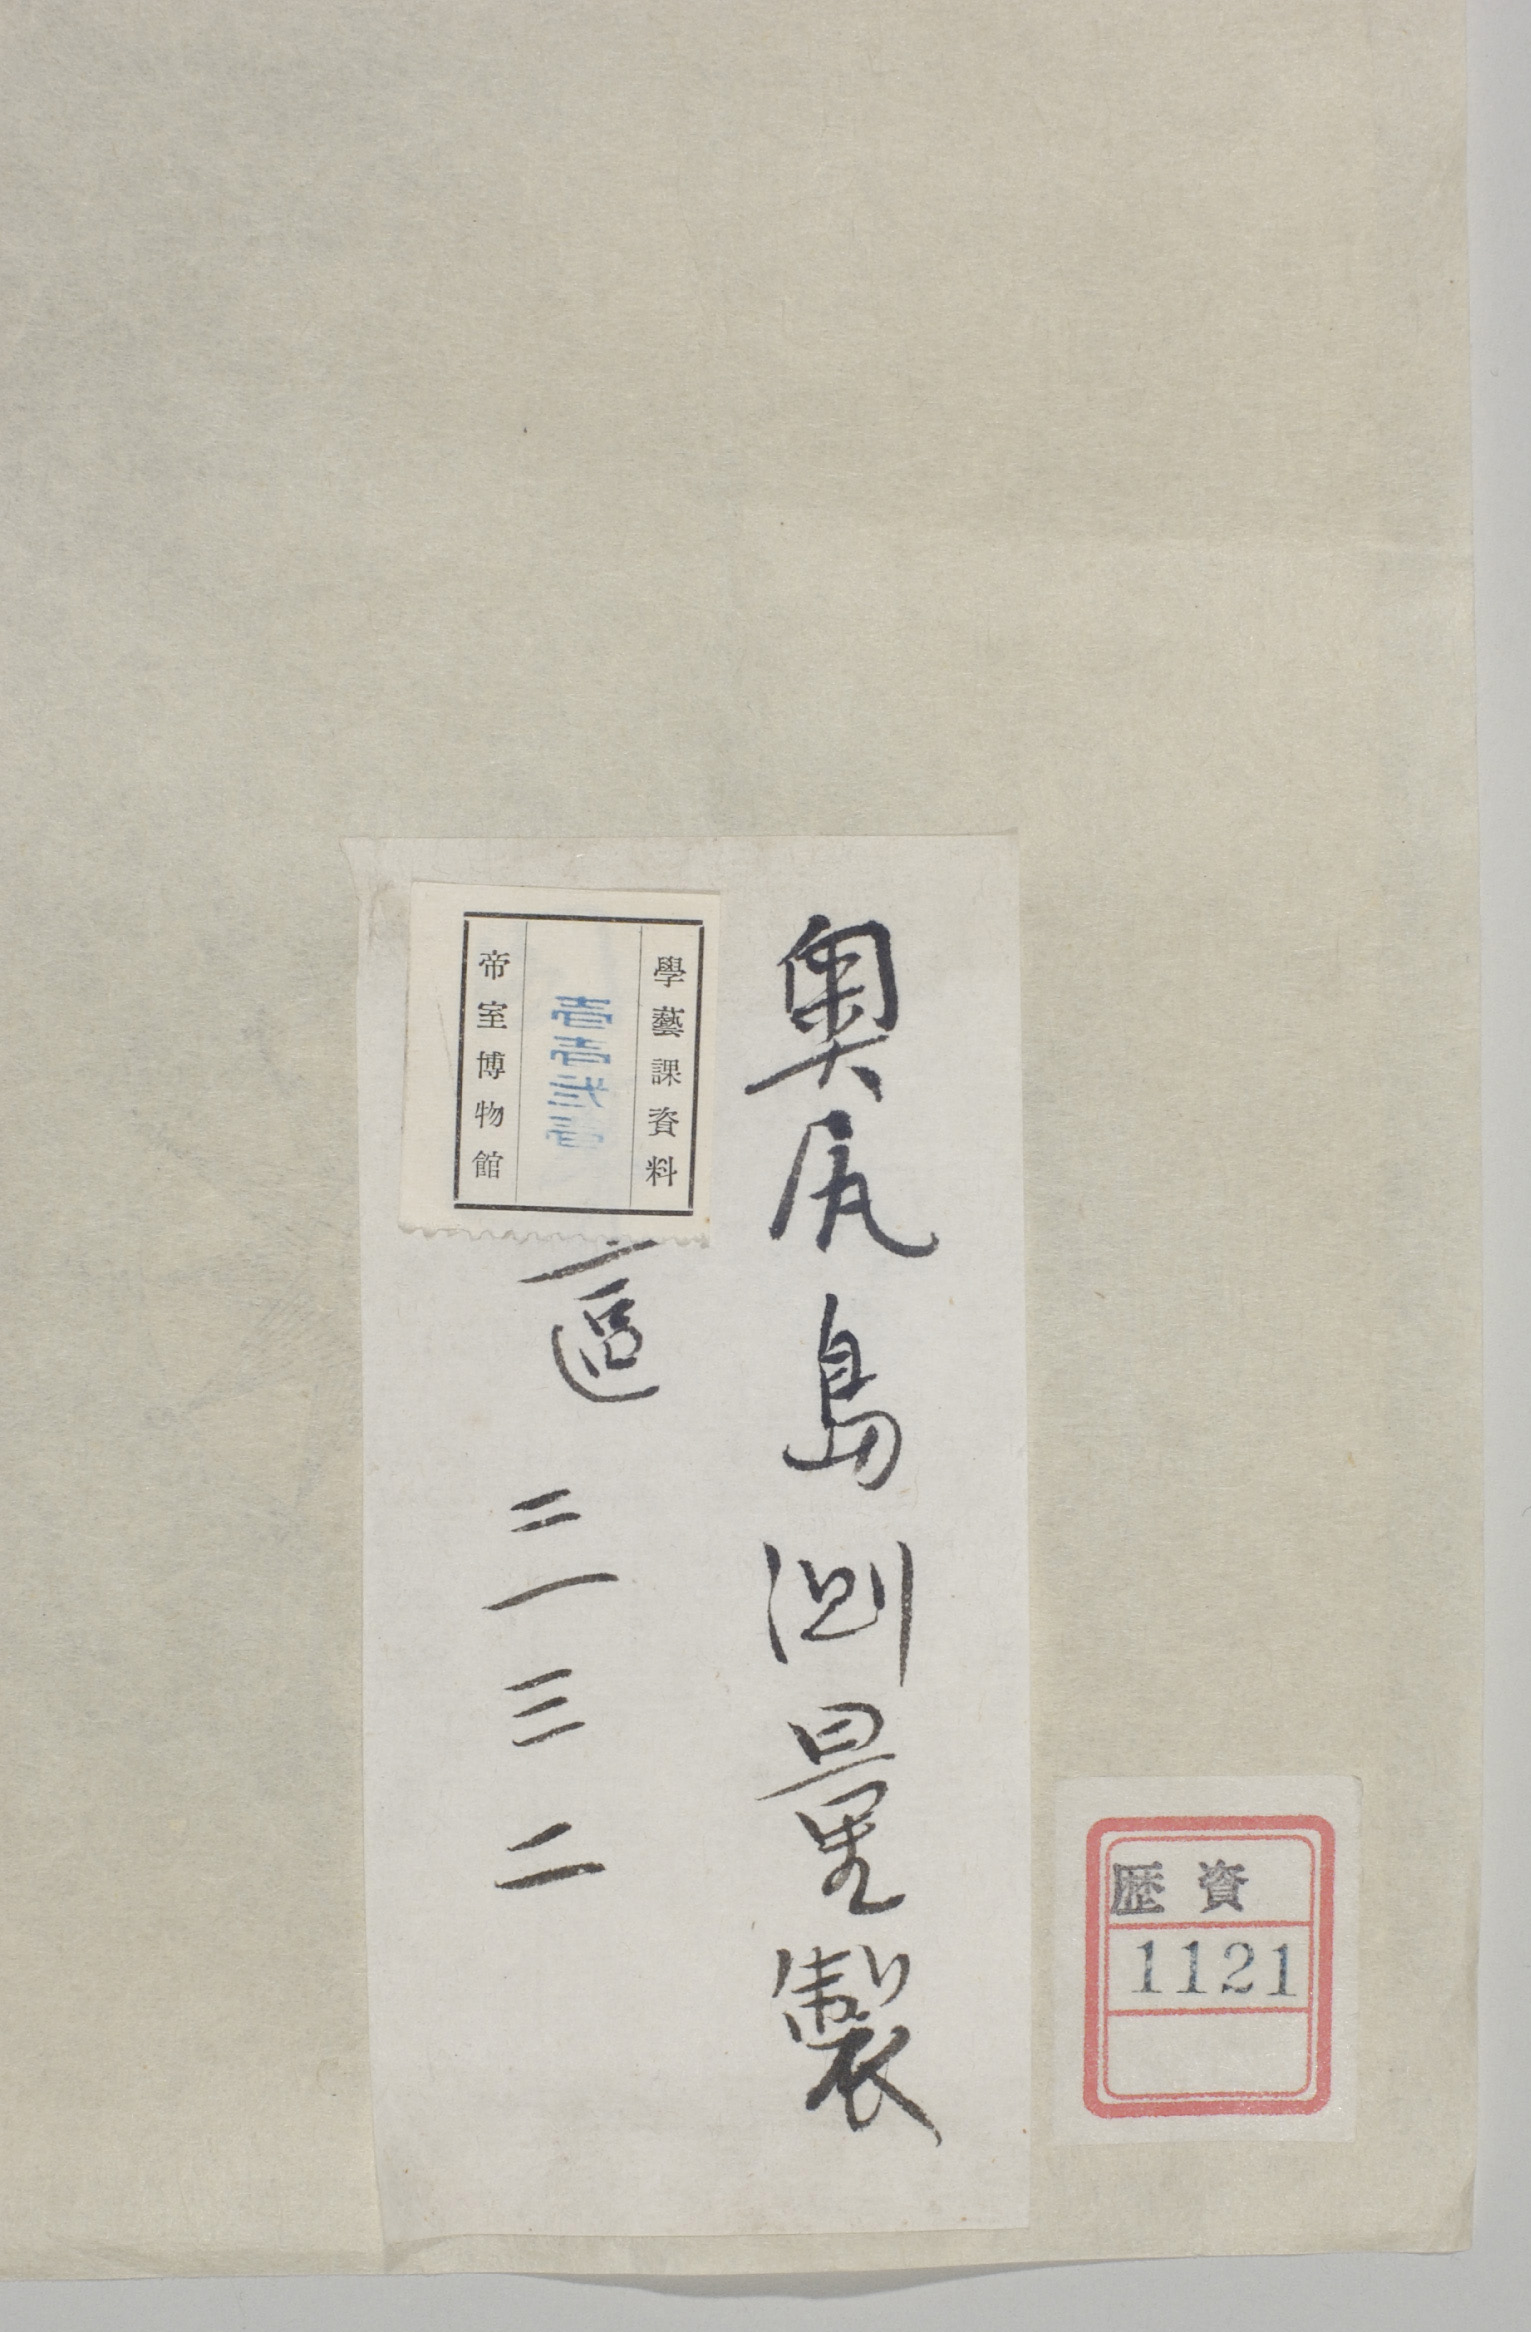 奥尻島測量製
學藝課資料
壹壹貳壹
帝室博物館
區 二一三二
歴資
1121